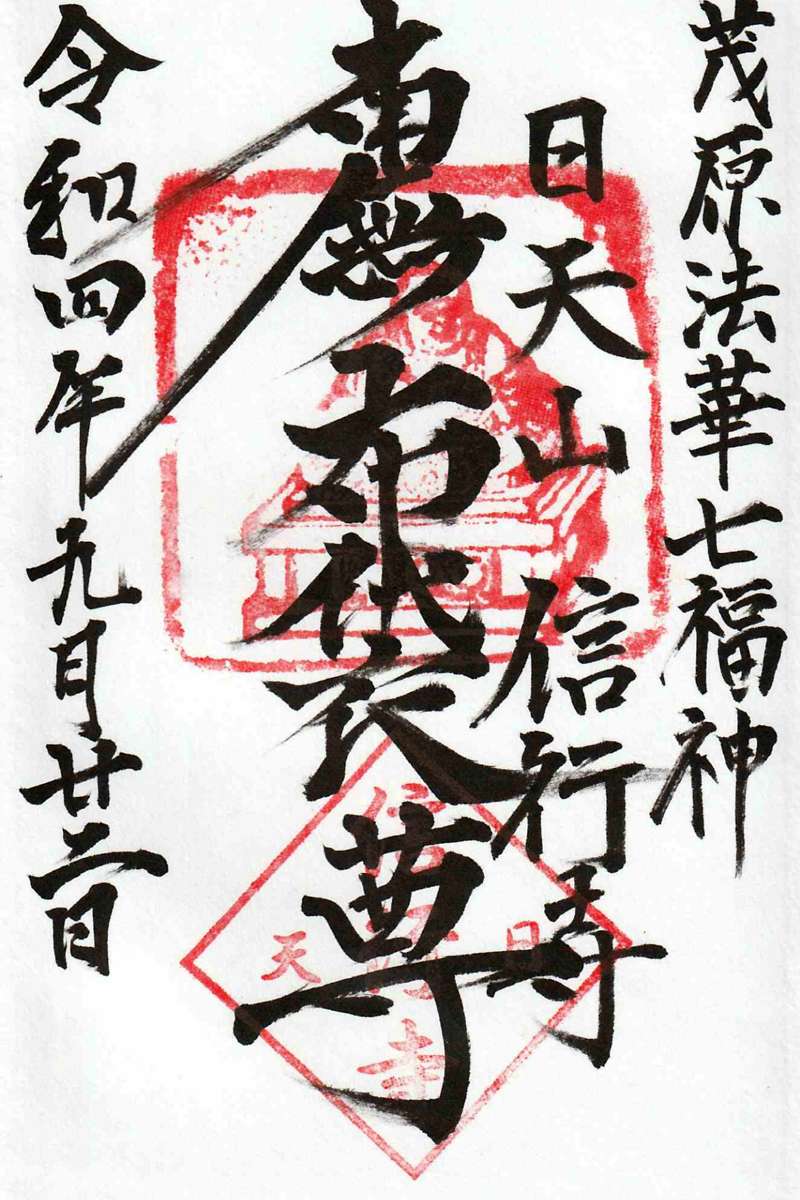 茂原法華七福神
日天山 信行寺
南無布袋尊
令和四年九月廿二日
信行寺
日
天